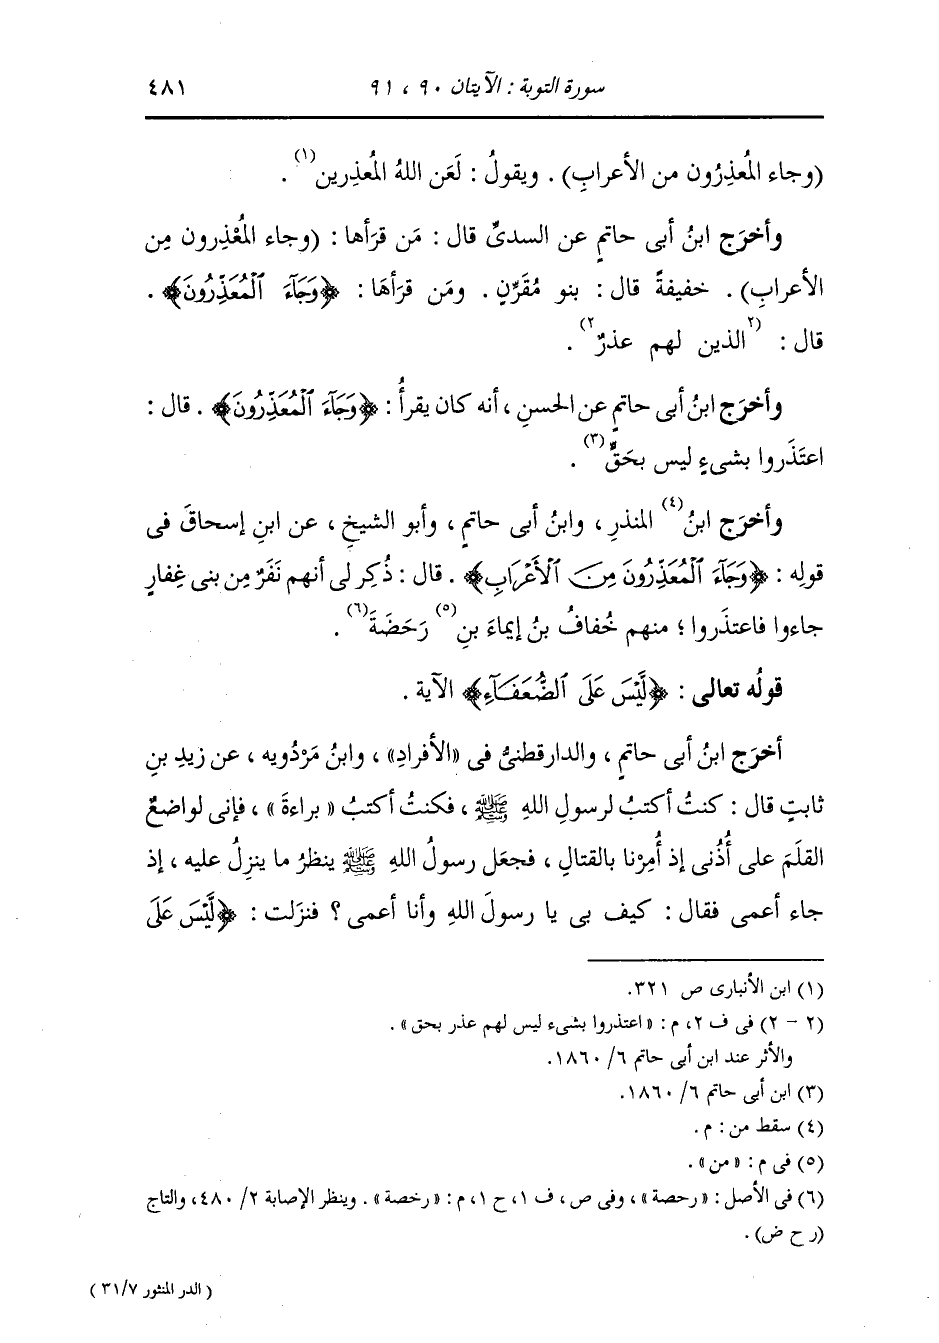 سورة التوبة : الآيتان ٩٠ ، ٩١ ٤٨١
(وجاء المُعذِرُون من الأعرابِ) . ويقولُ : لَعَن اللهُ المُعذِرين(١) .
وأخرَج ابنُ أبى حاتمٍ عن السدىِّ قال : مَن قرَأها : (وجاء المُعْذِرون مِن
الأعرابِ) . خفيفةً قال : بنو مُقَرِّنٍ . ومَن قرَأهَا : ﴿وَجَآءَ ٱلْمُعَذِّرُونَ﴾ .
قال : (٢الذين لهم عذرٌ٢) .
وأخرَج ابنُ أبى حاتمٍ عن الحسنِ ، أنه كان يقرأُ : ﴿وَجَآءَ ٱلْمُعَذِّرُونَ﴾ . قال :
اعتَذَروا بشىءٍ ليس بحَقٍّ(٣) .
وأخرَج ابنُ(٤) المنذرِ ، وابنُ أبى حاتمٍ ، وأبو الشيخِ ، عن ابنِ إسحاقَ فى
قولِه : ﴿وَجَآءَ ٱلْمُعَذِّرُونَ مِنَ ٱلْأَعْرَابِ﴾ . قال : ذُكِر لى أنهم نَفَرٌ مِن بنى غِفارٍ
جاءوا فاعتذَروا ؛ منهم خُفافُ بنُ إيماءَ بنِ(٥) رَحَضَةَ(٦) .
قولُه تعالى : ﴿لَّيْسَ عَلَى ٱلضُّعَفَآءِ﴾ الآية .
أخرَج ابنُ أبى حاتمٍ ، والدارقطنىُّ فى «الأفرادِ» ، وابنُ مَرْدُويه ، عن زيدِ بنِ
ثابتٍ قال : كنتُ أكتبُ لرسولِ اللهِ ﷺ ، فكنتُ أكتبُ «براءةَ» ، فإنى لواضعٌ
القلَمَ على أُذُنى إذ أُمِرْنا بالقتالِ ، فجعَل رسولُ اللهِ ﷺ ينظرُ ما ينزِلُ عليه ، إذ
جاء أعمى فقال : كيف بى يا رسولَ اللهِ وأنا أعمى ؟ فنزَلت : ﴿لَّيْسَ عَلَى
(١) ابن الأنبارى ص ٣٢١.
(٢ - ٢) فى ف ٢، م : «اعتذروا بشىء ليس لهم عذر بحق» .
والأثر عند ابن أبى حاتم ٦/ ١٨٦٠.
(٣) ابن أبى حاتم ٦/ ١٨٦٠.
(٤) سقط من : م .
(٥) فى م : «من» .
(٦) فى الأصل : «رحصة» ، وفى ص ، ف ١، ح ١، م : «رخصة» . وينظر الإصابة ٢/ ٤٨٠، والتاج
(ر ح ض) .
( الدر المنثور ٣١/٧ )